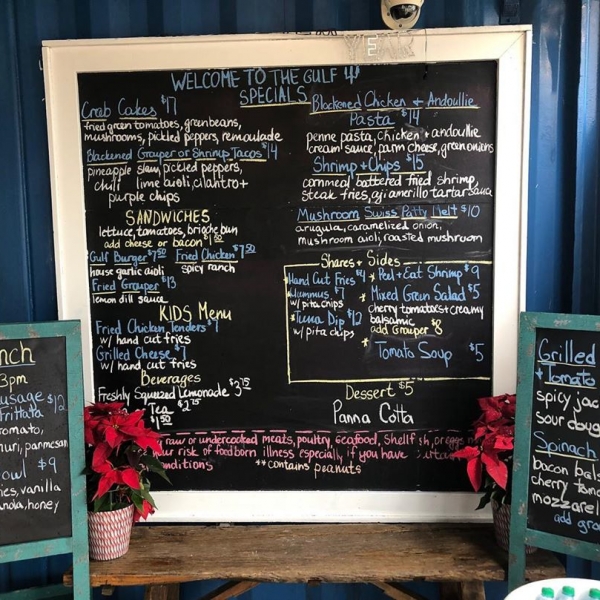 WELCOME TO THE GULF !!
SPECIALS
Crab Cakes $17
fried green tomatoes, greenbeans,
mushrooms, pickled peppers, remoulade
Blackened Grouper or Shrimp Tacos $14
pineapple slaw, pickled peppers,
chili lime aioli, cilantro +
purple chips
Blackened Chicken + Andoullie
Pasta $14
penne pasta, chicken + andoullie
cream sauce, parm cheese, green onions
Shrimp + Chips $15
cornmeal battered fried shrimp,
steak fries, aji amarillo tartar sauce
Mushroom Swiss Patty Melt $10
arugula, caramelized onion,
mushroom aioli, roasted mushroom
SANDWICHES
lettuce, tomatoes, brioche bun
add cheese or bacon $1.50
Gulf Burger $7.50 Fried Chicken $7.50
house garlic aioli spicy ranch
Fried Grouper $13
lemon dill sauce
KIDS Menu
Fried Chicken Tenders $7
w/ hand cut fries
Grilled Cheese $7
w/ hand cut fries
Beverages
Freshly Squeezed Lemonade $3.75
Tea $2.75
$1.50
Shares + Sides
Hand Cut Fries $4
*Hummus $7
w/ pita chips
*Tuna Dip $12
w/ pita chips
* Peel + Eat Shrimp $9
* Mixed Green Salad $5
cherry tomatoes + creamy
balsamic
add Grouper $8
* Tomato Soup $5
Dessert $5
Panna Cotta
raw or undercooked meats, poultry, seafood, shellfish, or eggs
your risk of foodborn illness especially, if you have
conditions **contains peanuts
nch
3pm
usage $12
frittata
omato,
nuri, parmesan
owl $9
ies, vanilla
nola, honey
Grilled
+ Tomato
spicy jac
sour doug
Spinach
bacon bals
cherry tom
mozzarel
add gro